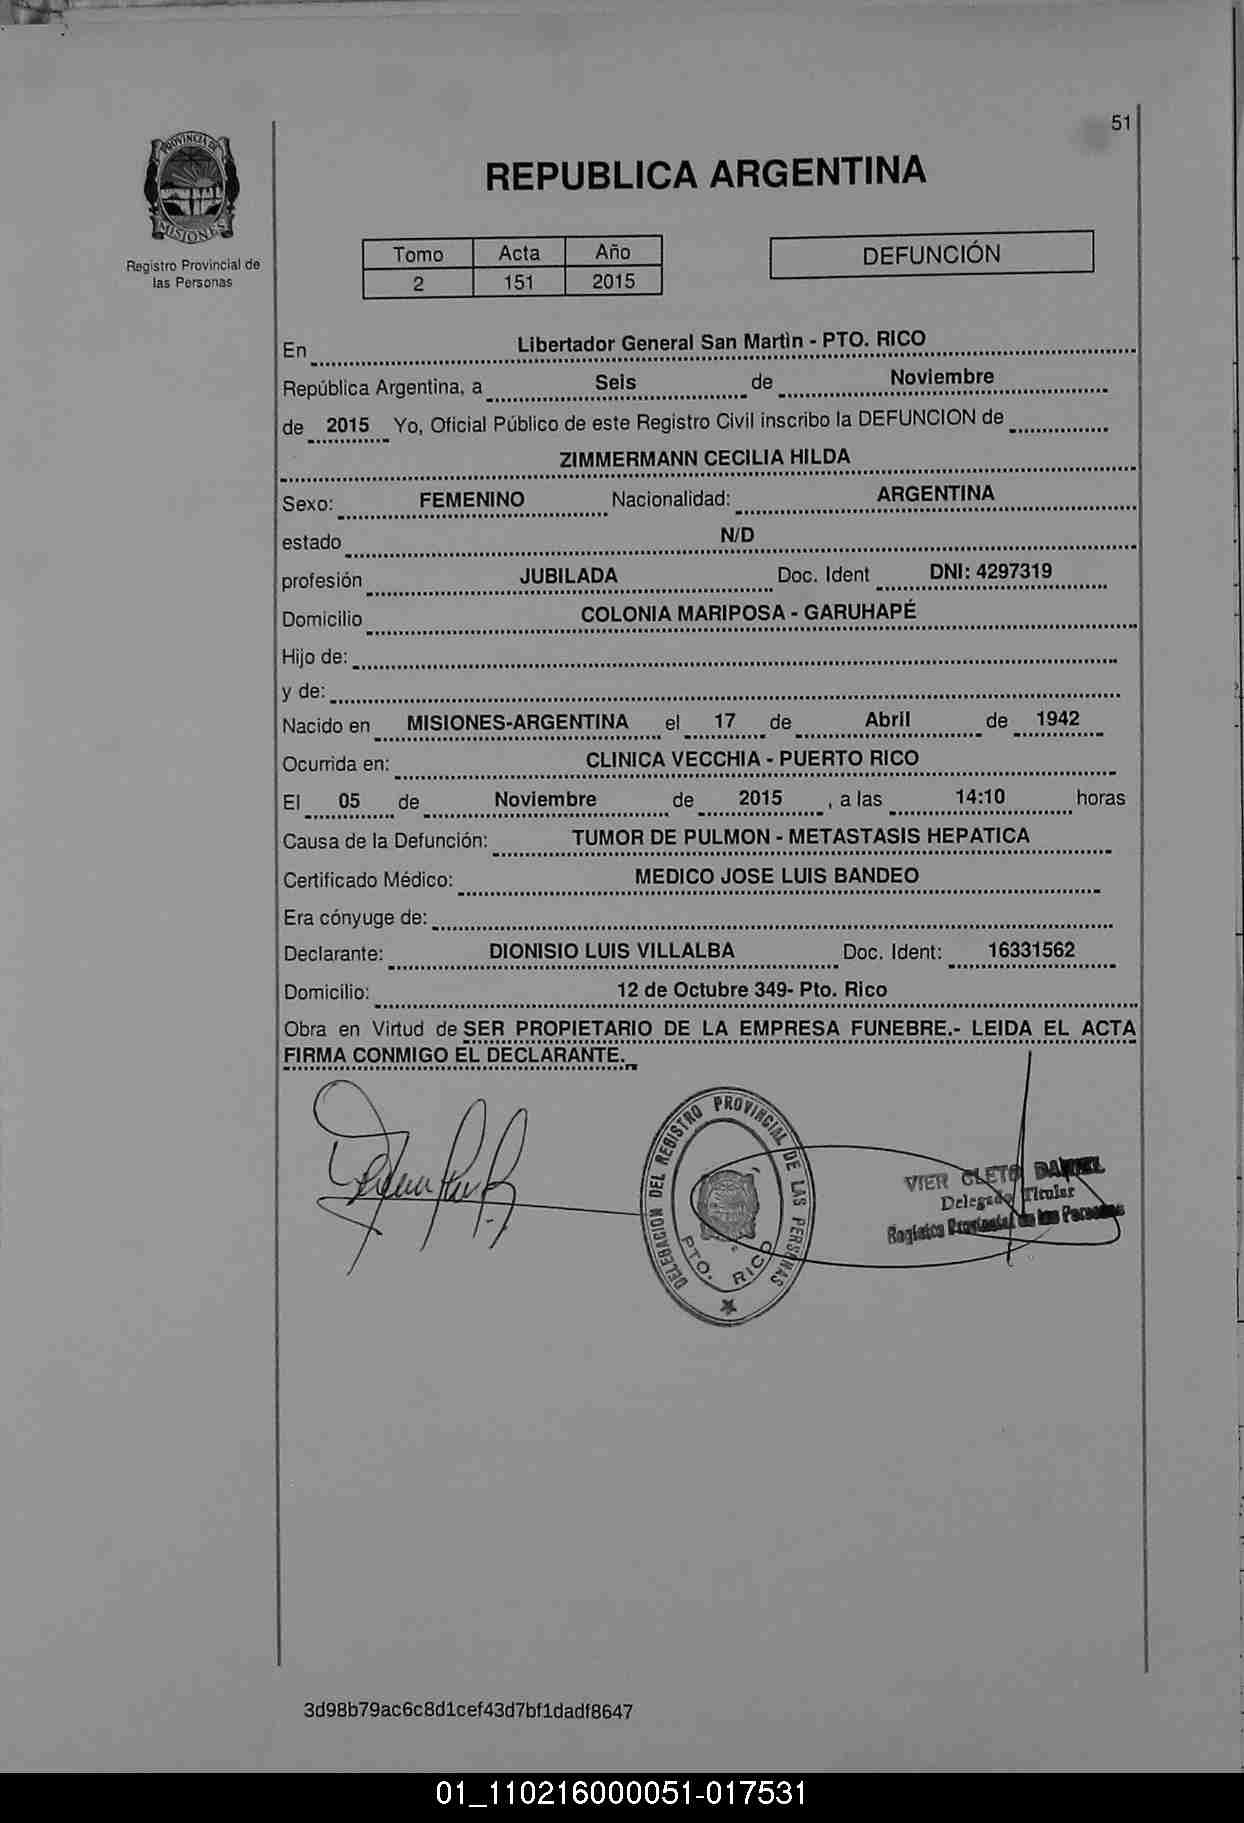 51
PROVINCIA DE
MISIONES
Registro Provincial de
las Personas
REPUBLICA ARGENTINA
Tomo Acta Año
2 151 2015
DEFUNCIÓN
En Libertador General San Martìn - PTO. RICO
República Argentina, a Seis de Noviembre
de 2015 Yo, Oficial Público de este Registro Civil inscribo la DEFUNCION de
ZIMMERMANN CECILIA HILDA
Sexo: FEMENINO Nacionalidad: ARGENTINA
estado N/D
profesión JUBILADA Doc. Ident DNI: 4297319
Domicilio COLONIA MARIPOSA - GARUHAPÉ
Hijo de:
y de:
Nacido en MISIONES-ARGENTINA el 17 de Abril de 1942
Ocurrida en: CLINICA VECCHIA - PUERTO RICO
El 05 de Noviembre de 2015 , a las 14:10 horas
Causa de la Defunción: TUMOR DE PULMON - METASTASIS HEPATICA
Certificado Médico: MEDICO JOSE LUIS BANDEO
Era cónyuge de:
Declarante: DIONISIO LUIS VILLALBA Doc. Ident: 16331562
Domicilio: 12 de Octubre 349- Pto. Rico
Obra en Virtud de SER PROPIETARIO DE LA EMPRESA FUNEBRE.- LEIDA EL ACTA
FIRMA CONMIGO EL DECLARANTE.
DELEGACION DEL REGISTRO PROVINCIAL DE LAS PERSONAS
PTO. RICO
VIER CLETO DANIEL
Delegado Titular
Registro Provincial de las Personas
3d98b79ac6c8d1cef43d7bf1dadf8647
01_110216000051-017531